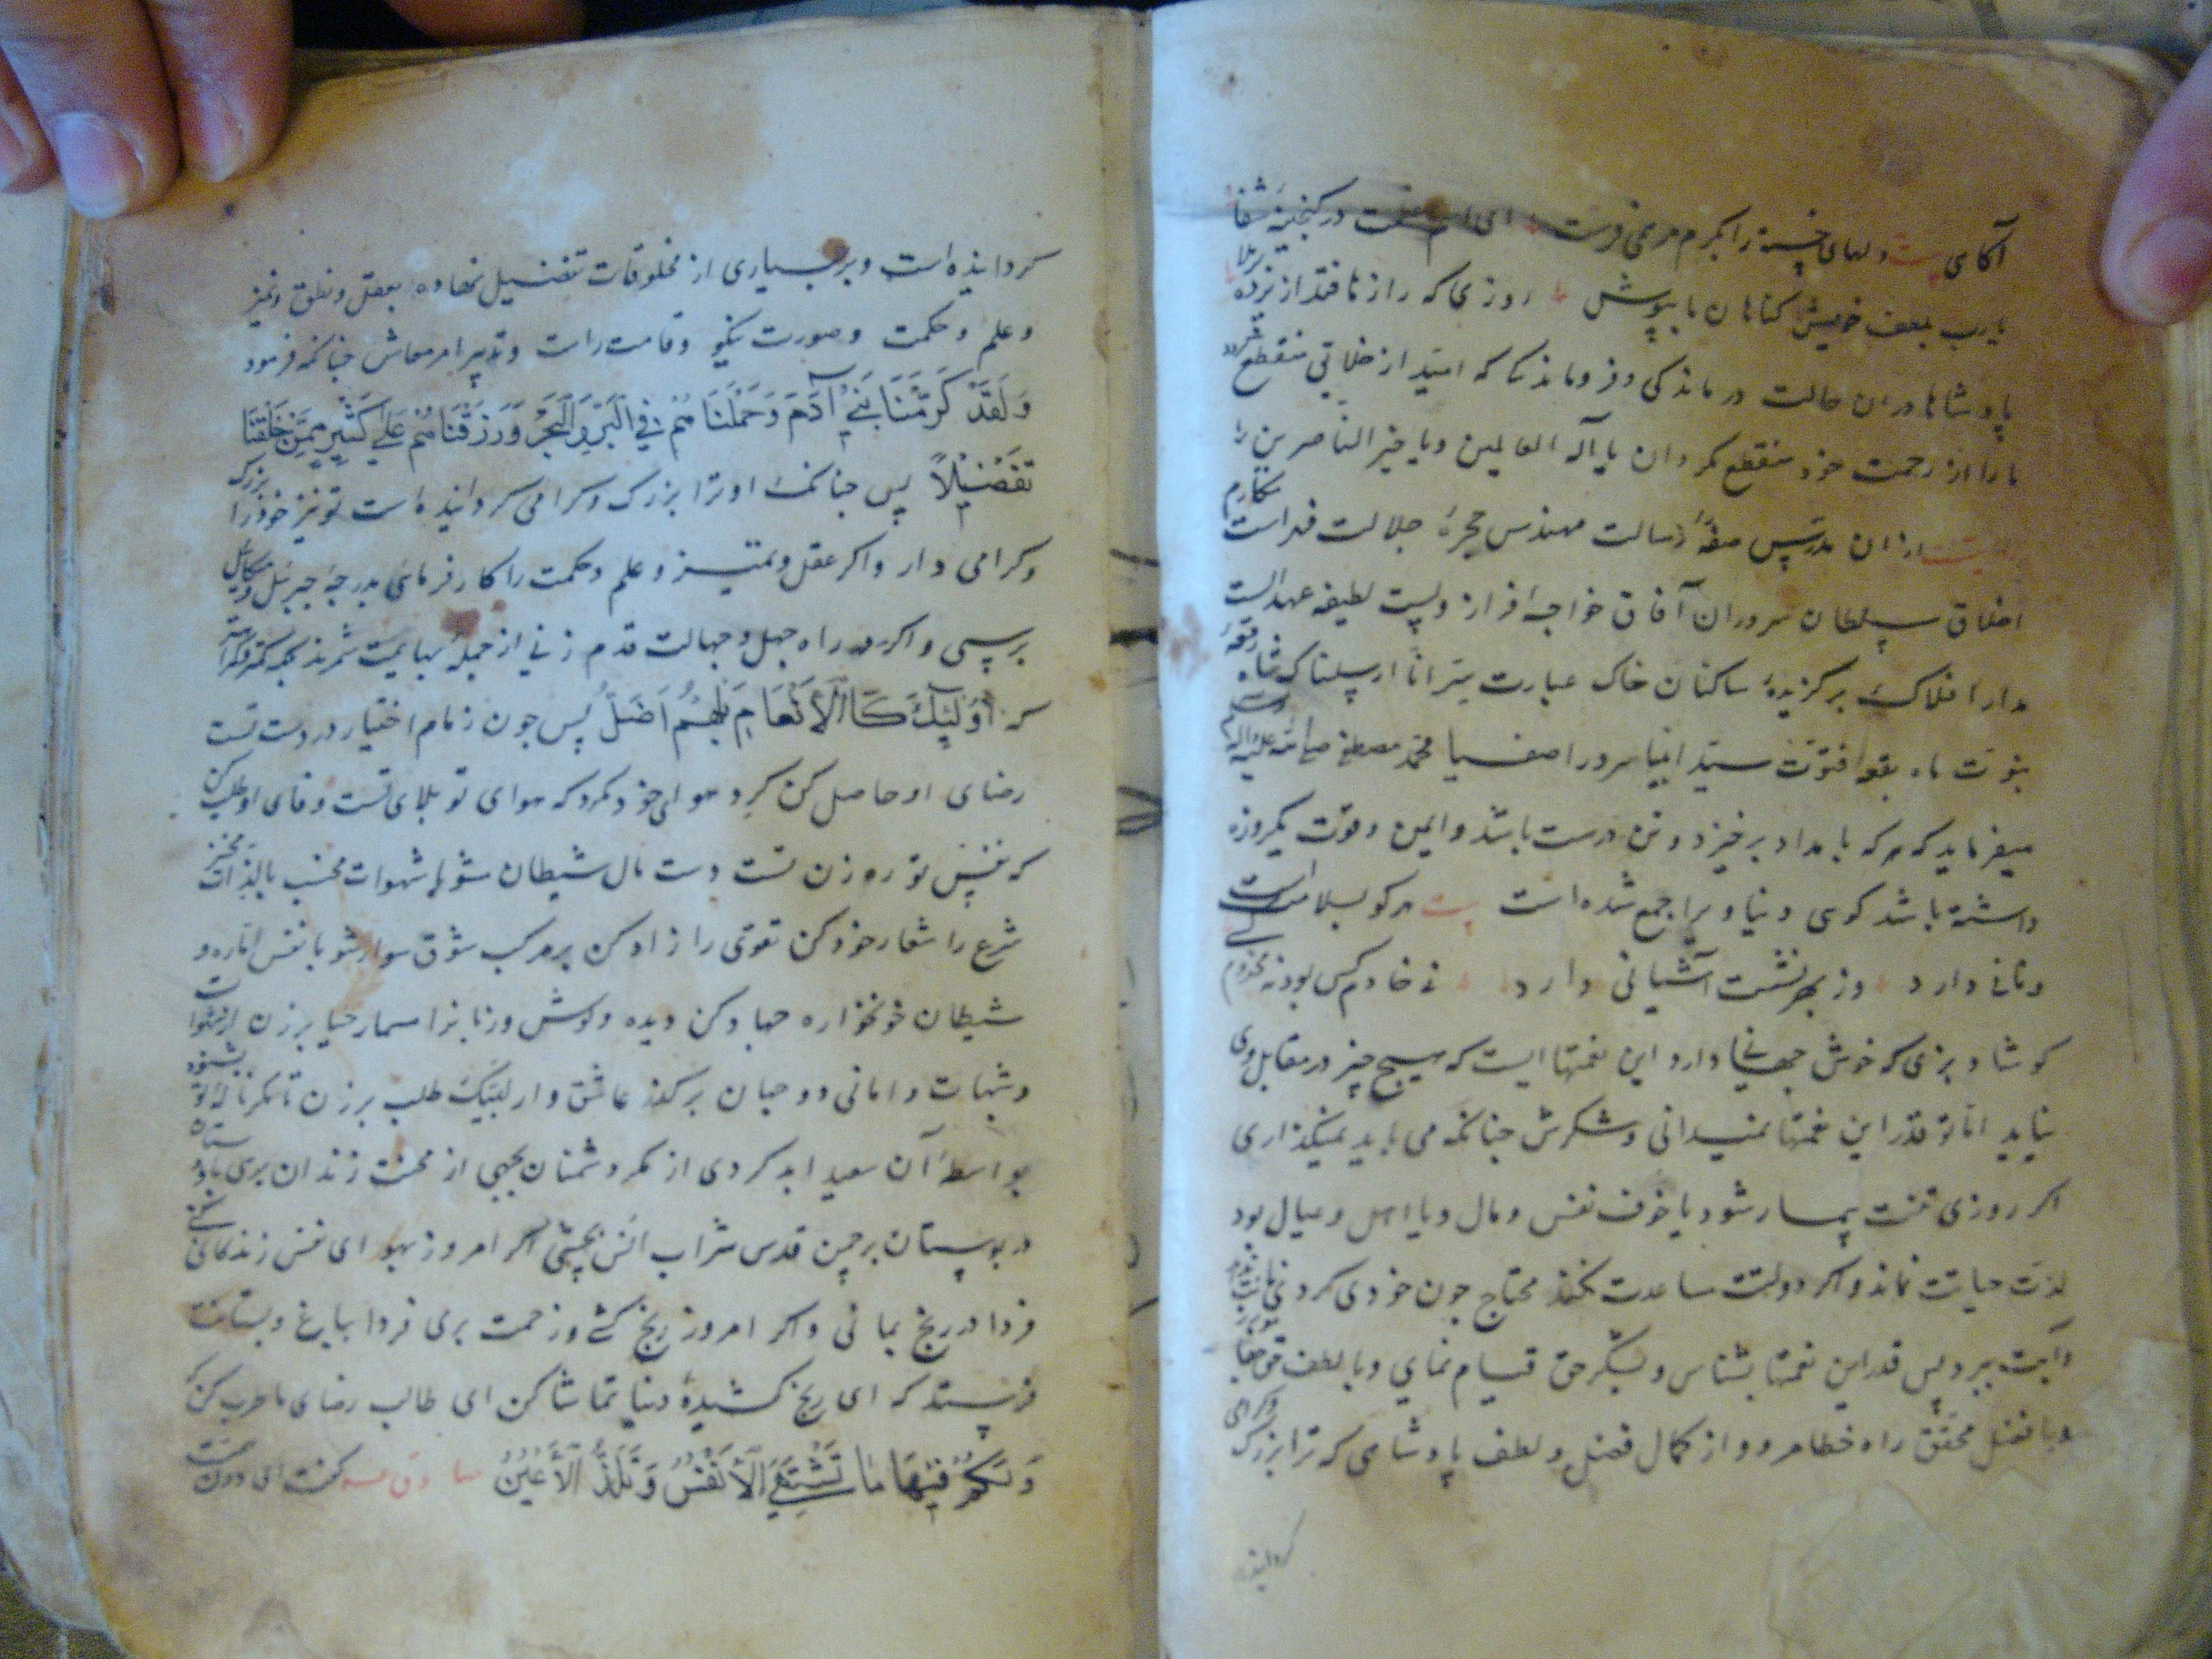 آکای بیت دلهای خسته را بکرم مرهمی فرست ای اسم در کنجینه شفا
یارب بلطف خویش کناهان ما بپوش روزی که رازها فتد از پرده برملا
پادشاها دران حالت درماندکی و فروماندکی که امید از خلایق منقطع کردد
ما را از رحمت خود منقطع مکردان یا آله العالمین ویا خیر الناصرین
از ان مدرس صفهٔ رسالت مهندس حجرهٔ جلالت فهراست مکارم
اخلاق سلطان سروران آفاق خواجهٔ افراز و پست لطیفه عهد الست
مدار افلاک برکزیدهٔ ساکنان خاک عبارت ارسلناک شاه رقعهٔ
نبوت ماه بقعهٔ فتوت سید انبیا سرور اصفیا محمد مصطفی صلی الله علیه واله
میفرماید که هر که بامداد برخیزد و تن درست باشد و ایمن و قوت یکروزه
داشته باشد کوی دنیا ویرا جمع شده است بیت هر کو بسلامت است
و نانی دارد وز بهر نشست آشیانی دارد نی خادم کس بود نه مخدوم کسی
کو شاد بزی که خوش جهانی دارد این نعمتها ایست که هیچ چیز در مقابل وی
نیاید اما تو قدر این نعمتها نمیدانی و شکرش چنانکه می باید نمیکذاری
اکر روزی تنت بیمار شود یا خوف نفس و مال ویا اهل و عیال بود
لذت حیاتت نماند و اکر دولتت مساعدت نکند محتاج چون خودی کردی
وآبت ببرد پس قدر این نعمتها بشناس و بشکر حق قیام نمای وبا لطف حق
وبا فضل محقق راه خطا مرو و از کمال فضل و لطف پادشاهی که ترا بزرک وکرامی
کردانیده
کردانیده است وبر بسیاری از مخلوقات تفضیل نهاده بعقل و نطق و تمیز
و علم و حکمت و صورت نیکو و قامت راست و تدبیر امر معاش چنانکه فرمود
وَلَقَدْ كَرَّمْنَا بَنِي آدَمَ وَحَمَلْنَاهُمْ فِي الْبَرِّ وَالْبَحْرِ وَرَزَقْنَاهُمْ عَلَى كَثِيرٍ مِمَّنْ خَلَقْنَا
تَفْضِيلًا پس چنانکه او ترا بزرک و کرامی کردانیده است تو نیز خود را بزرک
وکرامی دار واکر عقل و تمیز و علم و حکمت را کار فرمای بدرجهٔ جبرئیل و میکائیل
برسی و اکر در راه جهل و جهالت قدم زنی از جملهٔ بهایمت شمرند بلکه کمتر
که أُولَئِكَ كَالْأَنْعَامِ بَلْ هُمْ أَضَلُّ پس چون زمام اختیار در دست تست
رضای او حاصل کن کرد هوای خود مکرد که هوای تو بلای تست وفای او طلب کن
که نفس تو ره زن تست دست مال شیطان مشو با شهوات مخسب با لذات مخیز
شرع را شعار خود کن تقوی را زاد کن بر مرکب شوق سوار شو با نفس اماره و
شیطان خونخواره جهاد کن دیده و کوش و زبانرا مسمار حیا برزن از شهوات
وشبهات و امانی دو جهان برکذر عاشق وار لبیک طلب برزن تا مکر نالهٔ تو بشنود
بواسطهٔ آن سعید ابد کردی از مکر دشمنان بجهی از محنت زندان بری
در بوستان بر چمن قدس شراب انس بچشی اکر امروز بهوای نفس زندکانی کنی
فردا در رنج بمانی و اکر امروز رنج کشی و زحمت بری فردا بباغ و بستانت
فرستد که ای رنج کشیدهٔ دنیا تماشا کن ای طالب رضای ما طرب کن
وَلَكُمْ فِيهَا مَا تَشْتَهِي الْأَنْفُسُ وَتَلَذُّ الْأَعْيُنُ کفت ای دوست